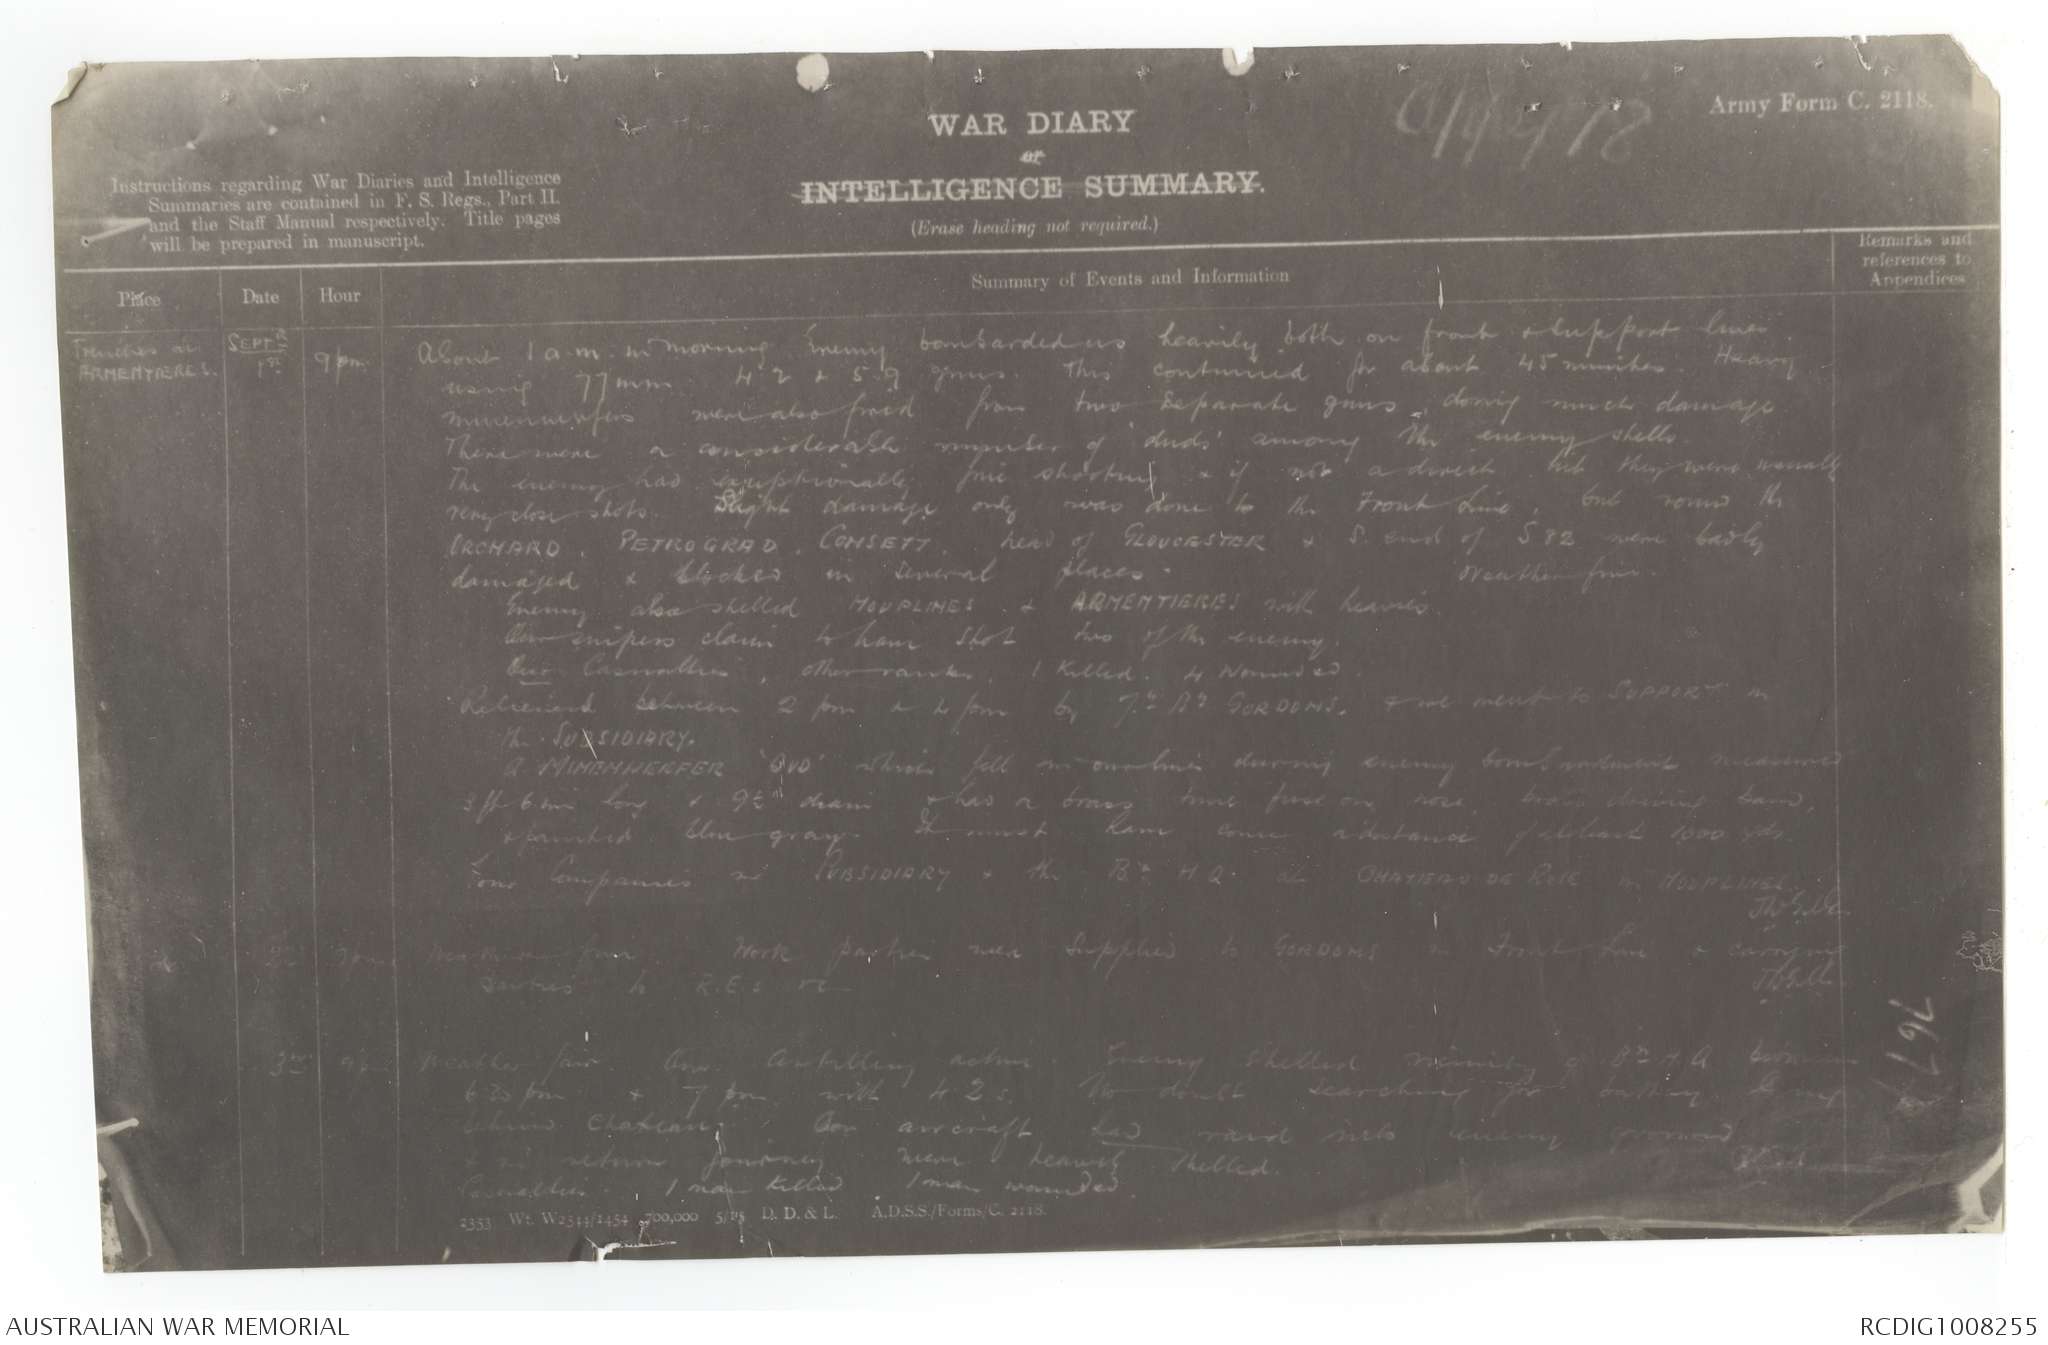 Army Form C. 2118.
WAR DIARY
or
INTELLIGENCE SUMMARY.
(Erase heading not required.)
Instructions regarding War Diaries and Intelligence
Summaries are contained in F. S. Regs., Part II.
and the Staff Manual respectively. Title pages
will be prepared in manuscript.
Place
Date
Hour
Summary of Events and Information
Remarks and
references to
Appendices
Trenches in
ARMENTIERES.
SEPT
1st
9pm
About 1 a.m. in morning Enemy bombarded us heavily both on front & support lines
using 77mm. 4.2 & 5.9 guns. This continued for about 45 minutes. Heavy
minenwerfers were also fired from two separate guns, doing much damage
There were a considerable number of 'duds' among the enemy shells.
The enemy had exceptionally fine shooting & if not a direct hit they were usually
very close shots. Slight damage only was done to the Front Line, but round the
ORCHARD, PETROGRAD, COMSETT, head of GLOUCESTER & S. end of S 82 were badly
damaged & blocked in several places. Weather fine.
Enemy also shelled HOUPLINES & ARMENTIERES with heavies.
Our snipers claim to have shot two of the enemy.
Our Casualties, other ranks, 1 Killed. 4 Wounded.
Relieved between 2 pm & 4 pm by 7th Bn GORDONS, & we went to SUPPORT in
the SUBSIDIARY.
A MINENWERFER 'DUD' which fell in our lines during enemy bombardment measured
3 ft 6 ins long & 9½" diam & had a brass time fuse on nose, brass driving band,
& painted blue gray. It must have come a distance of at least 1000 yds.
Four Companies in SUBSIDIARY & the Bn H.Q. at CHATEAU DE ROSE in HOUPLINES.
2nd
9pm
Weather fair. Work parties were supplied to GORDONS in Front Line & carrying
parties to R.E.s etc
3rd
9pm
Weather fair. Our Artillery active. Enemy shelled vicinity of Bn H.Q between
6.30 pm & 7 pm with 4.2s. No doubt searching for battery firing
behind Chateau. Our aircraft had raid into enemy ground
& on return journey were heavily shelled.
Casualties. 1 man killed 1 man wounded.
2353 Wt. W2544/1454 700,000 5/15 D. D. & L. A.D.S.S./Forms/C. 2118.
AUSTRALIAN WAR MEMORIAL
RCDIG1008255